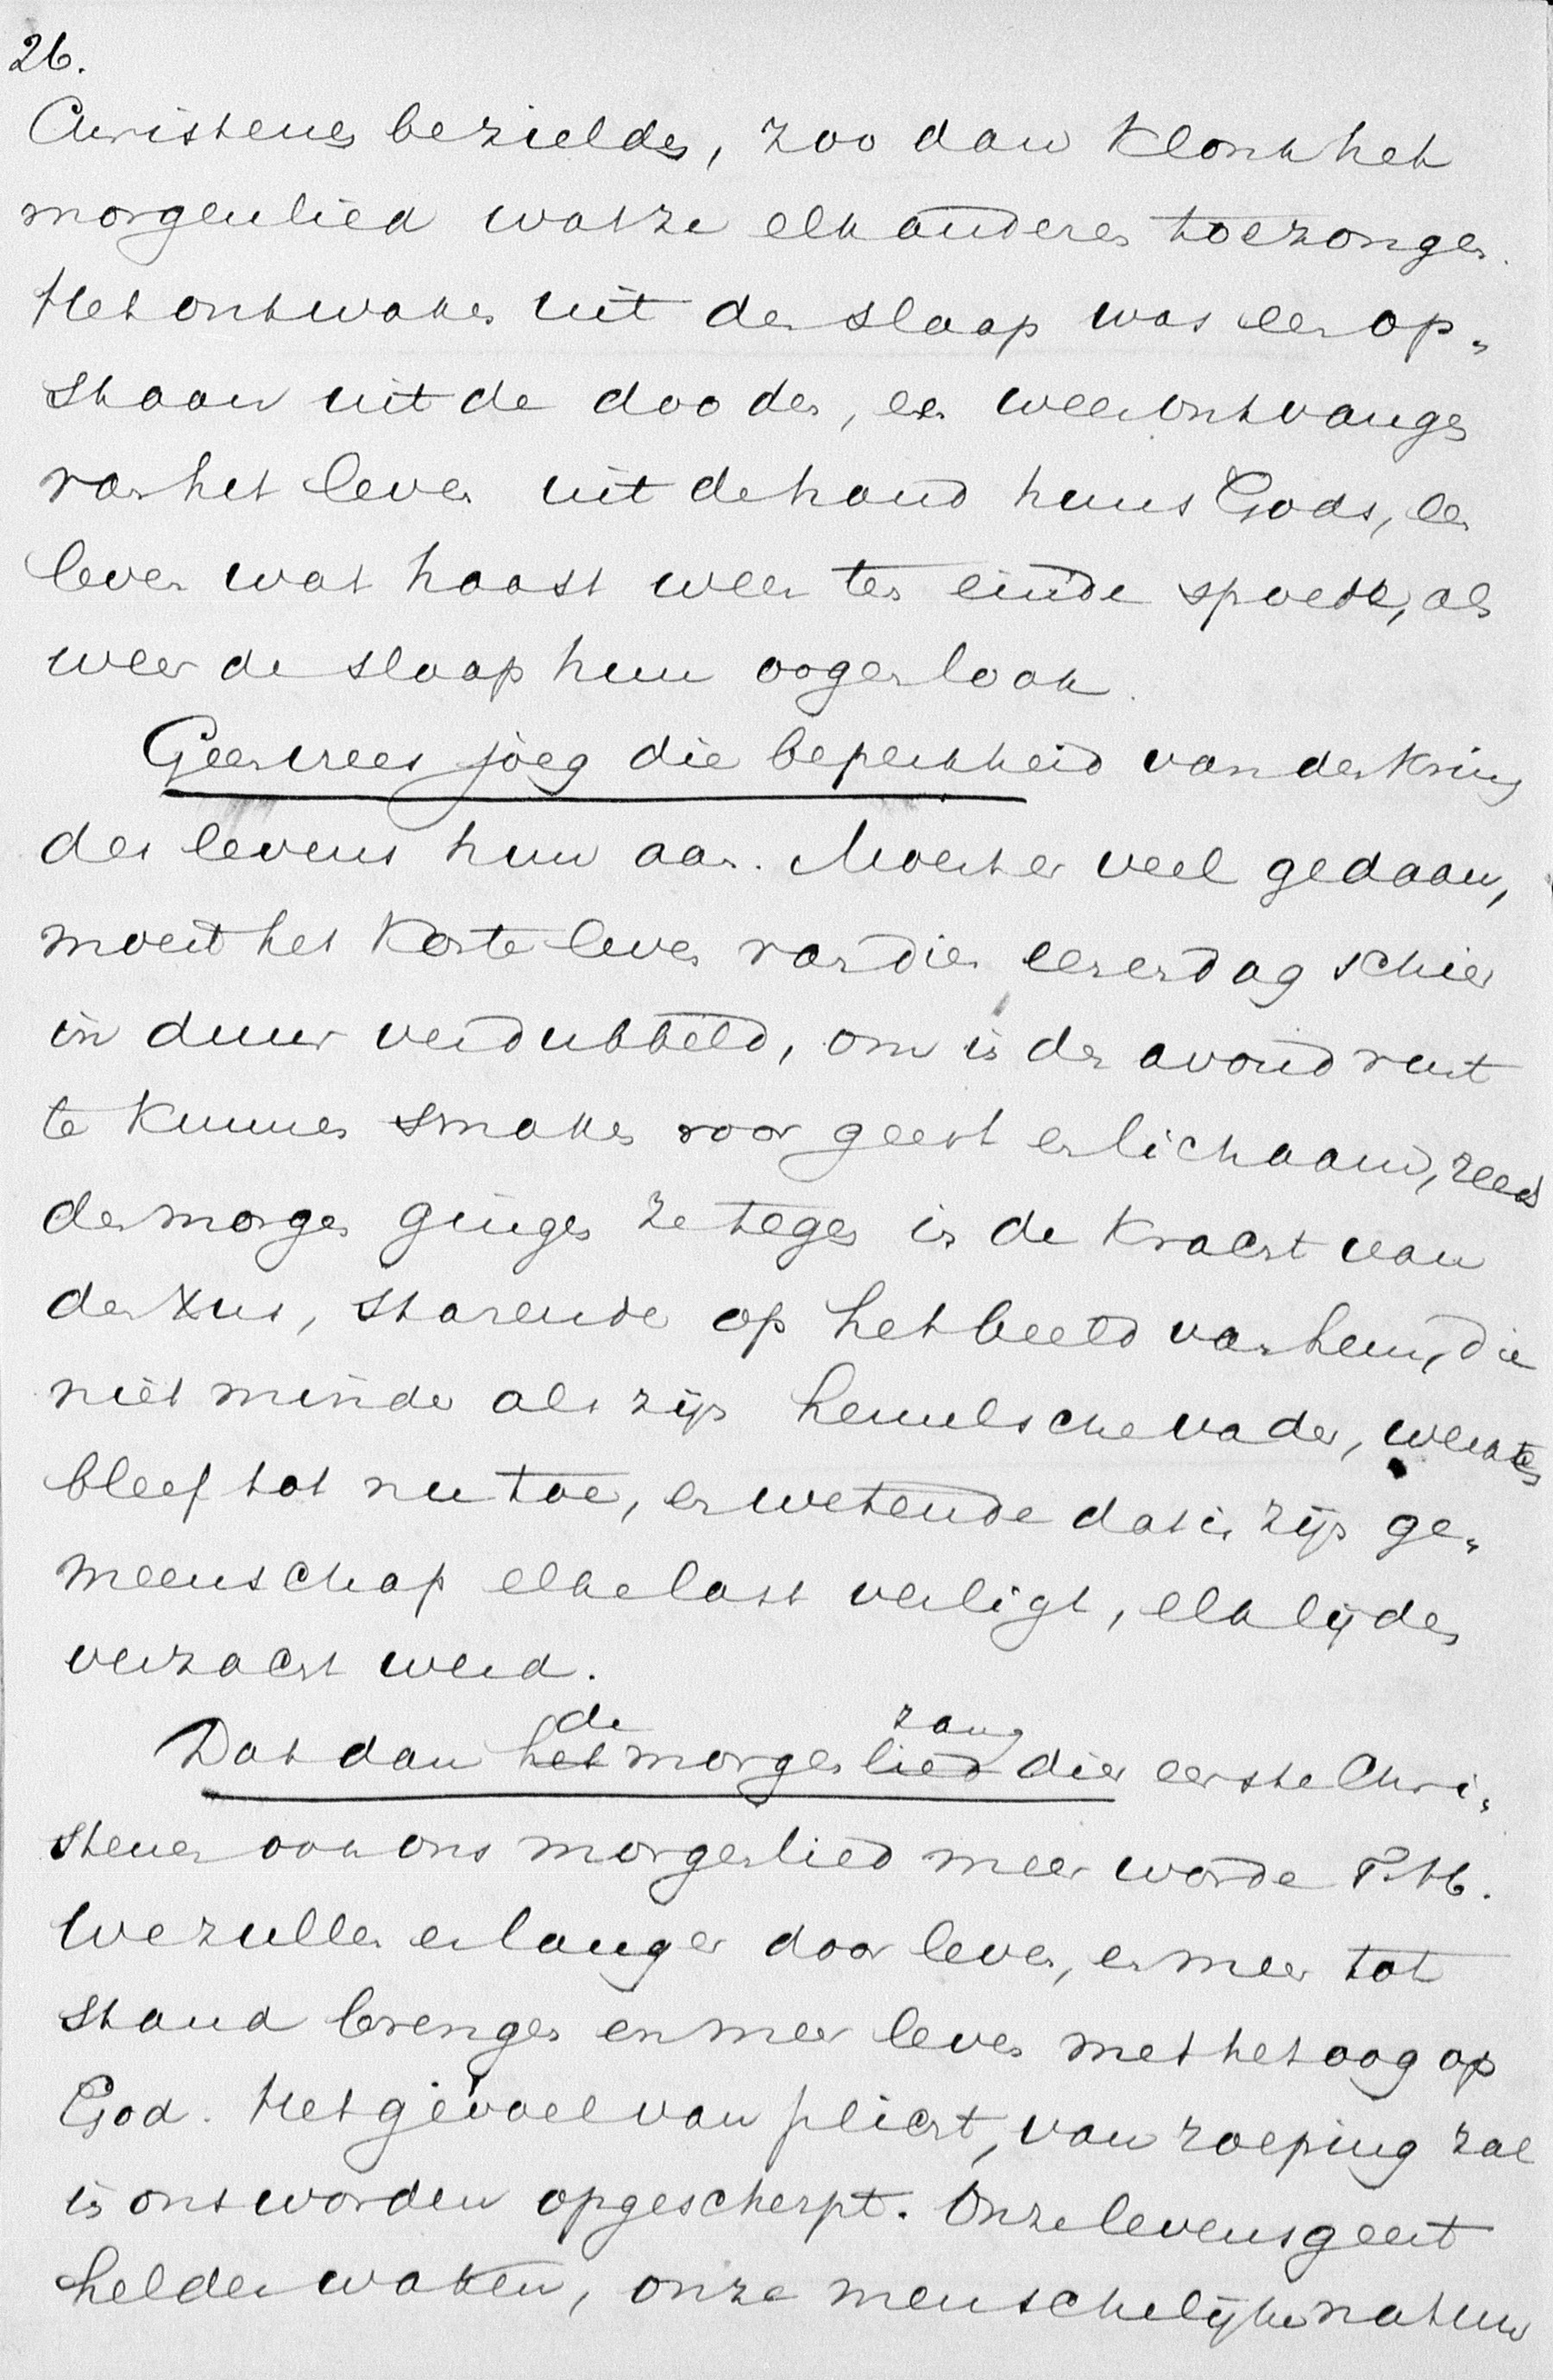 26.
Christenen bezielde, zoo dan klonk het
morgenlied wat ze elkanderen toezongen.
Het ontwaken uit den slaap was een op„
staan uit de dooden, een weerontvangen
van het leven uit de hand huns Gods, een
leven wat haast weer ten einde spoedde, als
weer de slaap hun oogen look.
Geen vrees joeg die beperktheid van den kring
des levens hun aan. Moest er veel gedaan,
moest het korte leven van dien eenen dag schier
in duur verdubbeld, om in den avond rust
te kunnen smaken voor geest en lichaam, reeds
den morgen gingen ze tegen in de kracht van
den Xus, starende op het beeld van hem, die
niet minder als zijn hemelsche vader, werkende
bleef tot nu toe, en wetende dat in zijn ge„
meenschap elke last verligt, elk lijden
verzacht werd.
Dat dan het de morgen lied zang dier eerste Chri„
stenen ook ons morgenlied meer worde T. H.
We zullen er langer door leven, er meer tot
stand brengen en meer leven met het oog op
God. Het gevoel van plicht, van roeping zal
in ons worden opgescherpt. Onze levensgeest
helder waken, onze menschelijke natuur